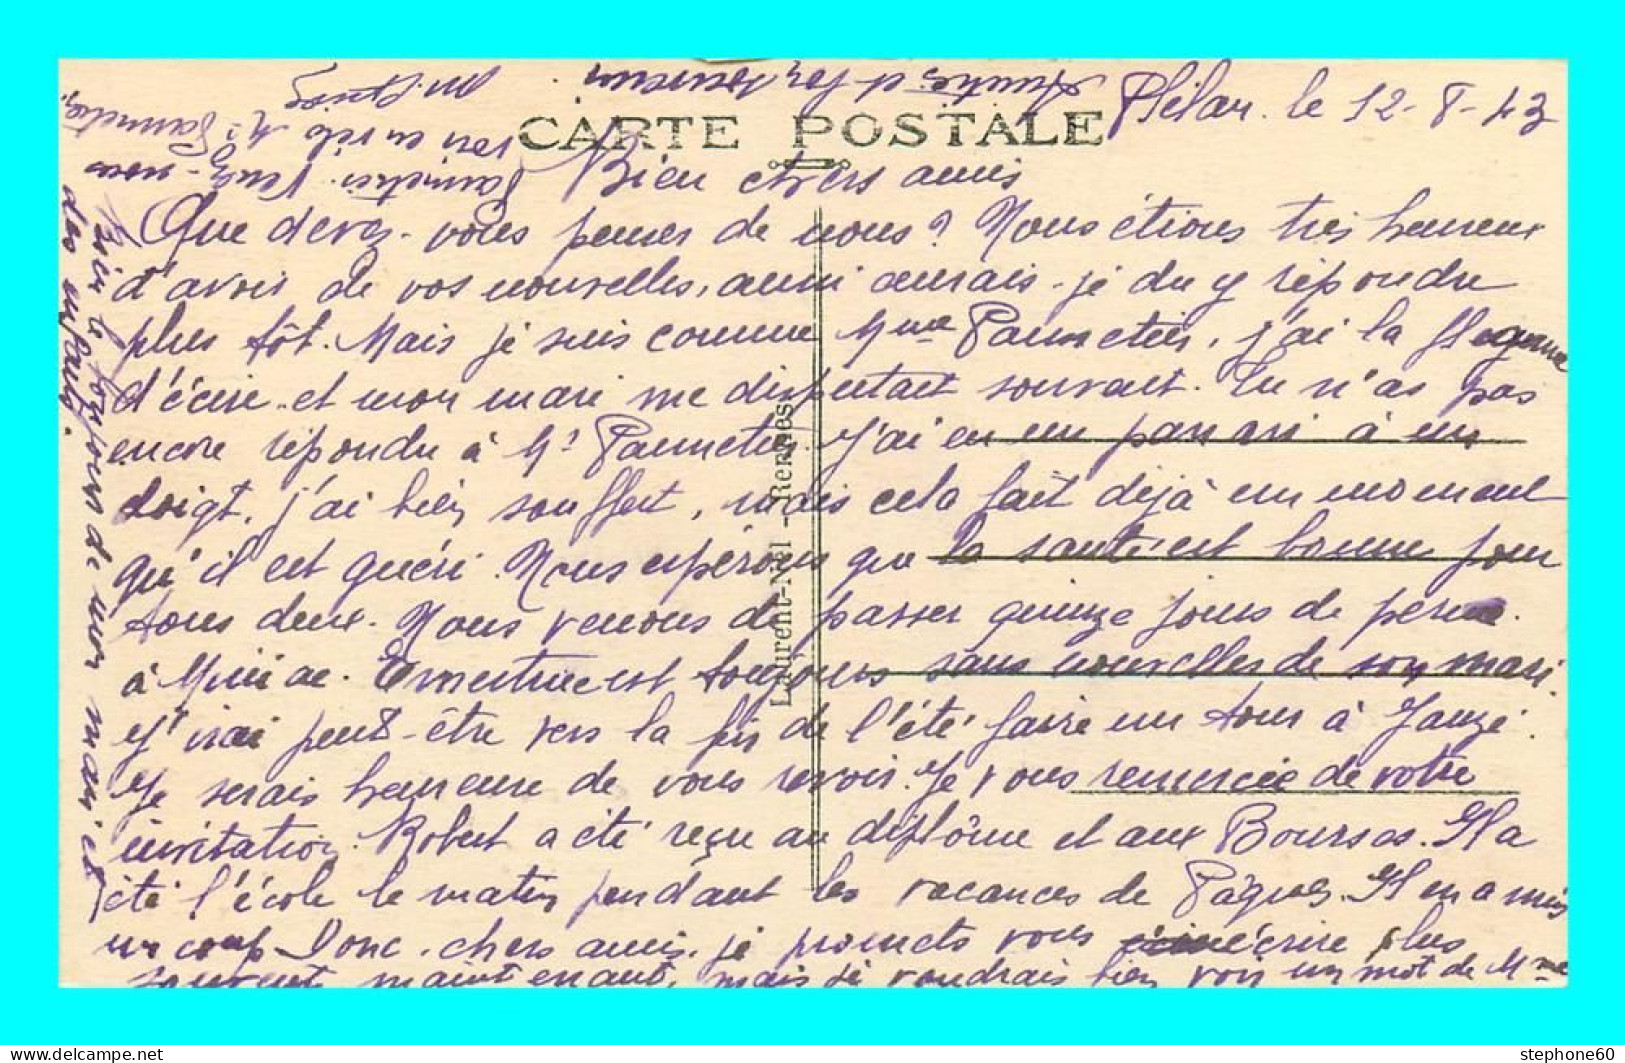 Plélan. le 12-8-43
CARTE POSTALE
Bien chers amis
Que devez-vous penser de nous? Nous étions très heureux
d'avoir de vos nouvelles, aussi aurais-je du y répondre
plus tôt. Mais je suis comme Mme Paumetier, j'ai la flegme
d'écire et mon mari me disputait souvent. Tu n'as pas
encore répondu à Mr Paumetier. J'ai eu un panari à un
doigt, j'ai bien souffert, mais cela fait déjà un moment
qu'il est guéri. Nous espérons que la santé est bonne pour
tous deux. Nous venons de passer quinze jours de perm
à Miniac. Ernestine est toujours sans nouvelles de son mari.
J'irai peut-être vers la fin de l'été faire un tour à Janzé.
Je serais heureuse de vous revoir. Je vous remercie de votre
invitation. Robert a été reçu au diplôme et aux Bourses. Il a
été à l'école le matin pendant les vacances de Pâques. Il en a mis
un coup. Donc, chers amis, je promets vous écrire plus
souvent maintenant, mais je voudrais bien voir un mot de Mme
Paumetier. Venez-nous
voir en vélo Mr Paumetier.
Bien le bonjour de mon mari et
des enfants.
Laurent-Nel - Rennes
stephone60